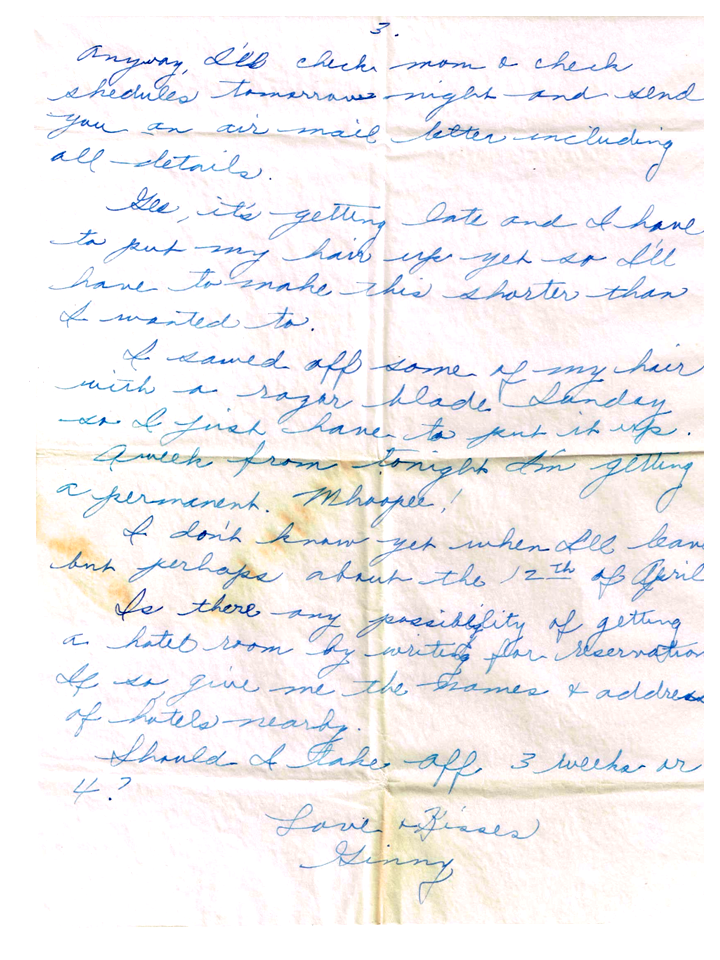 3.
Anyway, I'll check mom & check
shedules tomorrow night and send
you an air mail letter including
all details.
Gee, it's getting late and I have
to put my hair up yet so I'll
have to make this shorter than
I wanted to.
I sawed off some of my hair
with a razor blade Sunday
so I just have to put it up.
A week from tonight I'm getting
a permanent. Whoopee!
I don't know yet when I'll leave
but perhaps about the 12th of April
Is there any possibility of getting
a hotel room by writing for reservation
If so, give me the names & address
of hotels nearby.
Should I take off 3 weeks or
4?
Love & Kisses
Ginny